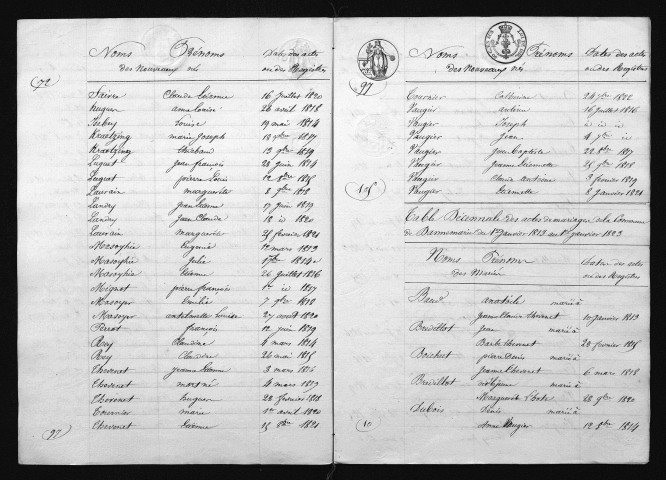 72
Noms Prénoms Dates des actes
des Nouveaux nés ou des Registres
Faivre Claude Etienne 16 juillet 1820
huguen anne Louise 20 avril 1818
Louise 19 mai 1814
Kraetzing marie Joseph 1817
Kraetzing thiebaud 13 9bre 1819
Luguet jean francois 28 juin 1814
Luguet pierre Louis 12 1815
Laurain marguerite 8 9bre 1818
Landry jean Etienne 17 juin 1819
Landry Jean Claude 18 id 1820
Laurain marguerite 25 fevrier 1821
Masoyhie Eugenie 12 mars 1813
Masoyhie Julie 1814
Masoyhie Etienne 26 juillet 1816
Mignot pierre françois 1er id 1817
Masoyer Emilie 7 9bre 1818
Masoyer Louise 27 avril 1820
Perrot françois 12 juin 1819
Rey Claudine 4 mars 1814
Rey Claudine 26 mai 1815
thevenet jeanne Etienne 3 mars 1816
thevenet 4 mars 1817
thevenet huguen 28 fevrier 1818
tournier marie 1er avril 1820
thevenet Etienne 15 1821
97
97
Noms Prénoms Dates des actes
des Nouveaux nés ou des Registres
Tournier Catherine 24 1822
Vaugier antoine 16 juillet 1816
Vaugier Joseph id id id
Vaugier Jean 4 id
Vaugier Jean Baptiste 22 8bre 1817
Vaugier Jeanne Etiennette 25 9bre 1818
Vaugier Claude Antoine 3 fevrier 1819
Vaugier Etiennette 8 janvier 1821
105
Table Décennale des actes de mariage de la Commune
de Bannemarie du 1er Janvier 1813 au 1er janvier 1823
Noms Prénoms Dates des actes
des Mariés ou des Registres
anatoile marié à
jeanne Claude thevenet 10 janvier 1813
Bredillot jean marié à
Barbe thevenet 28 fevrier 1815
Boichut pierre Denis marié à
Jeanne thevenet 6 mars 1818
Breuillot marié à
Marguerite 28 9bre 1820
Dubois Denis marié à
Anne Vaugier 12 8bre 1814
10